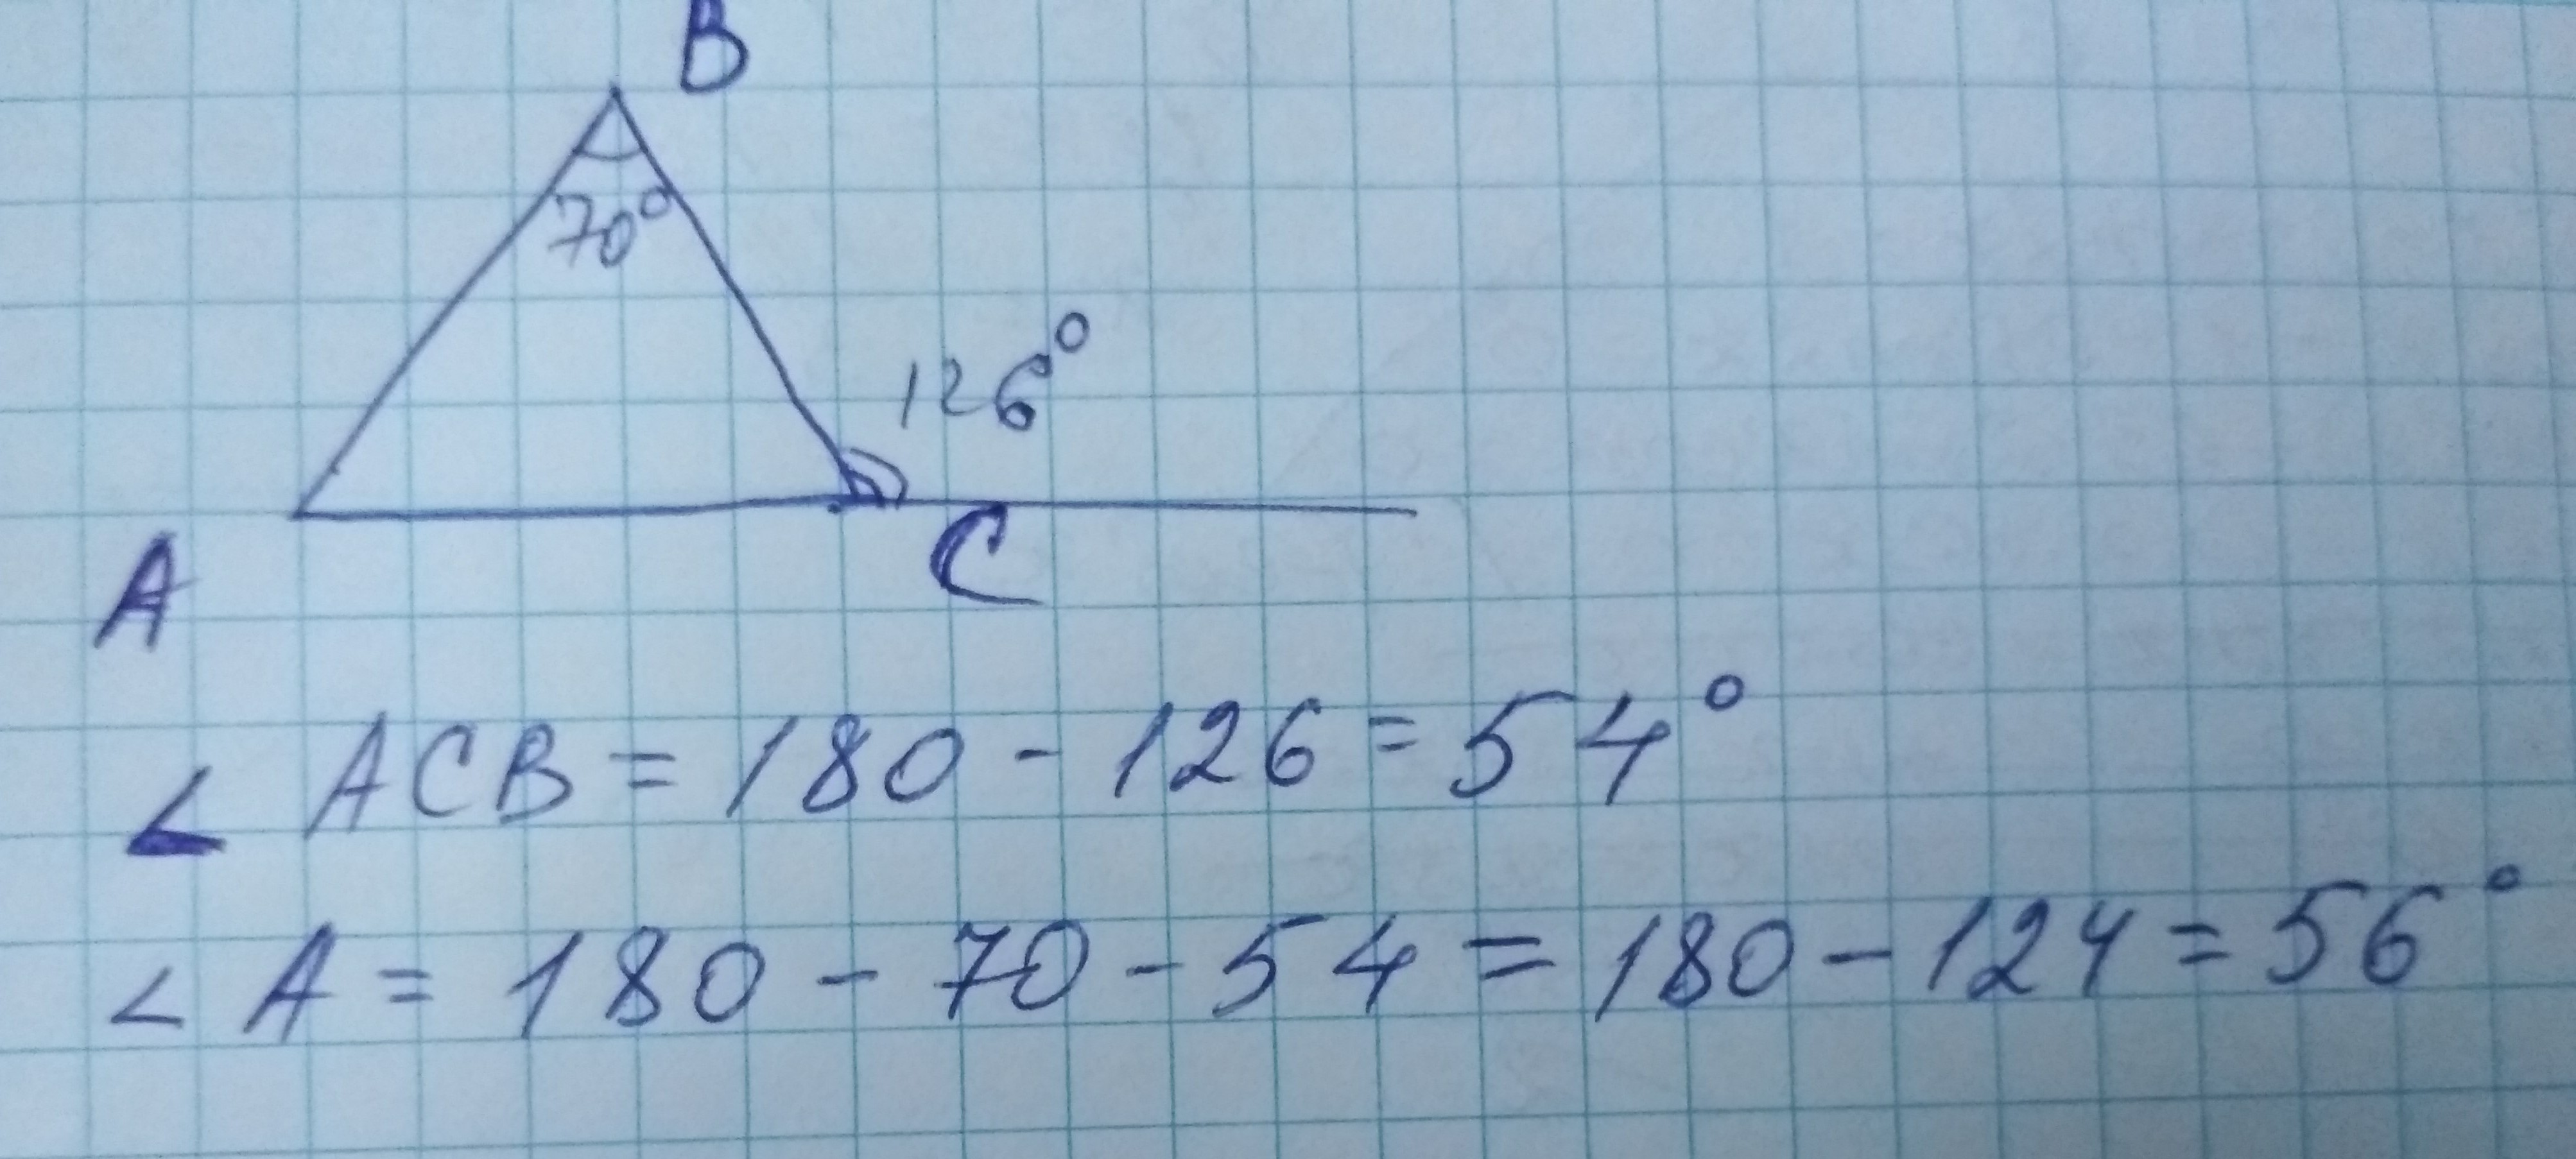 B
70°
126°
A
C
∠ ACB = 180 - 126 = 54°
∠ A = 180 - 70 - 54 = 180 - 124 = 56°